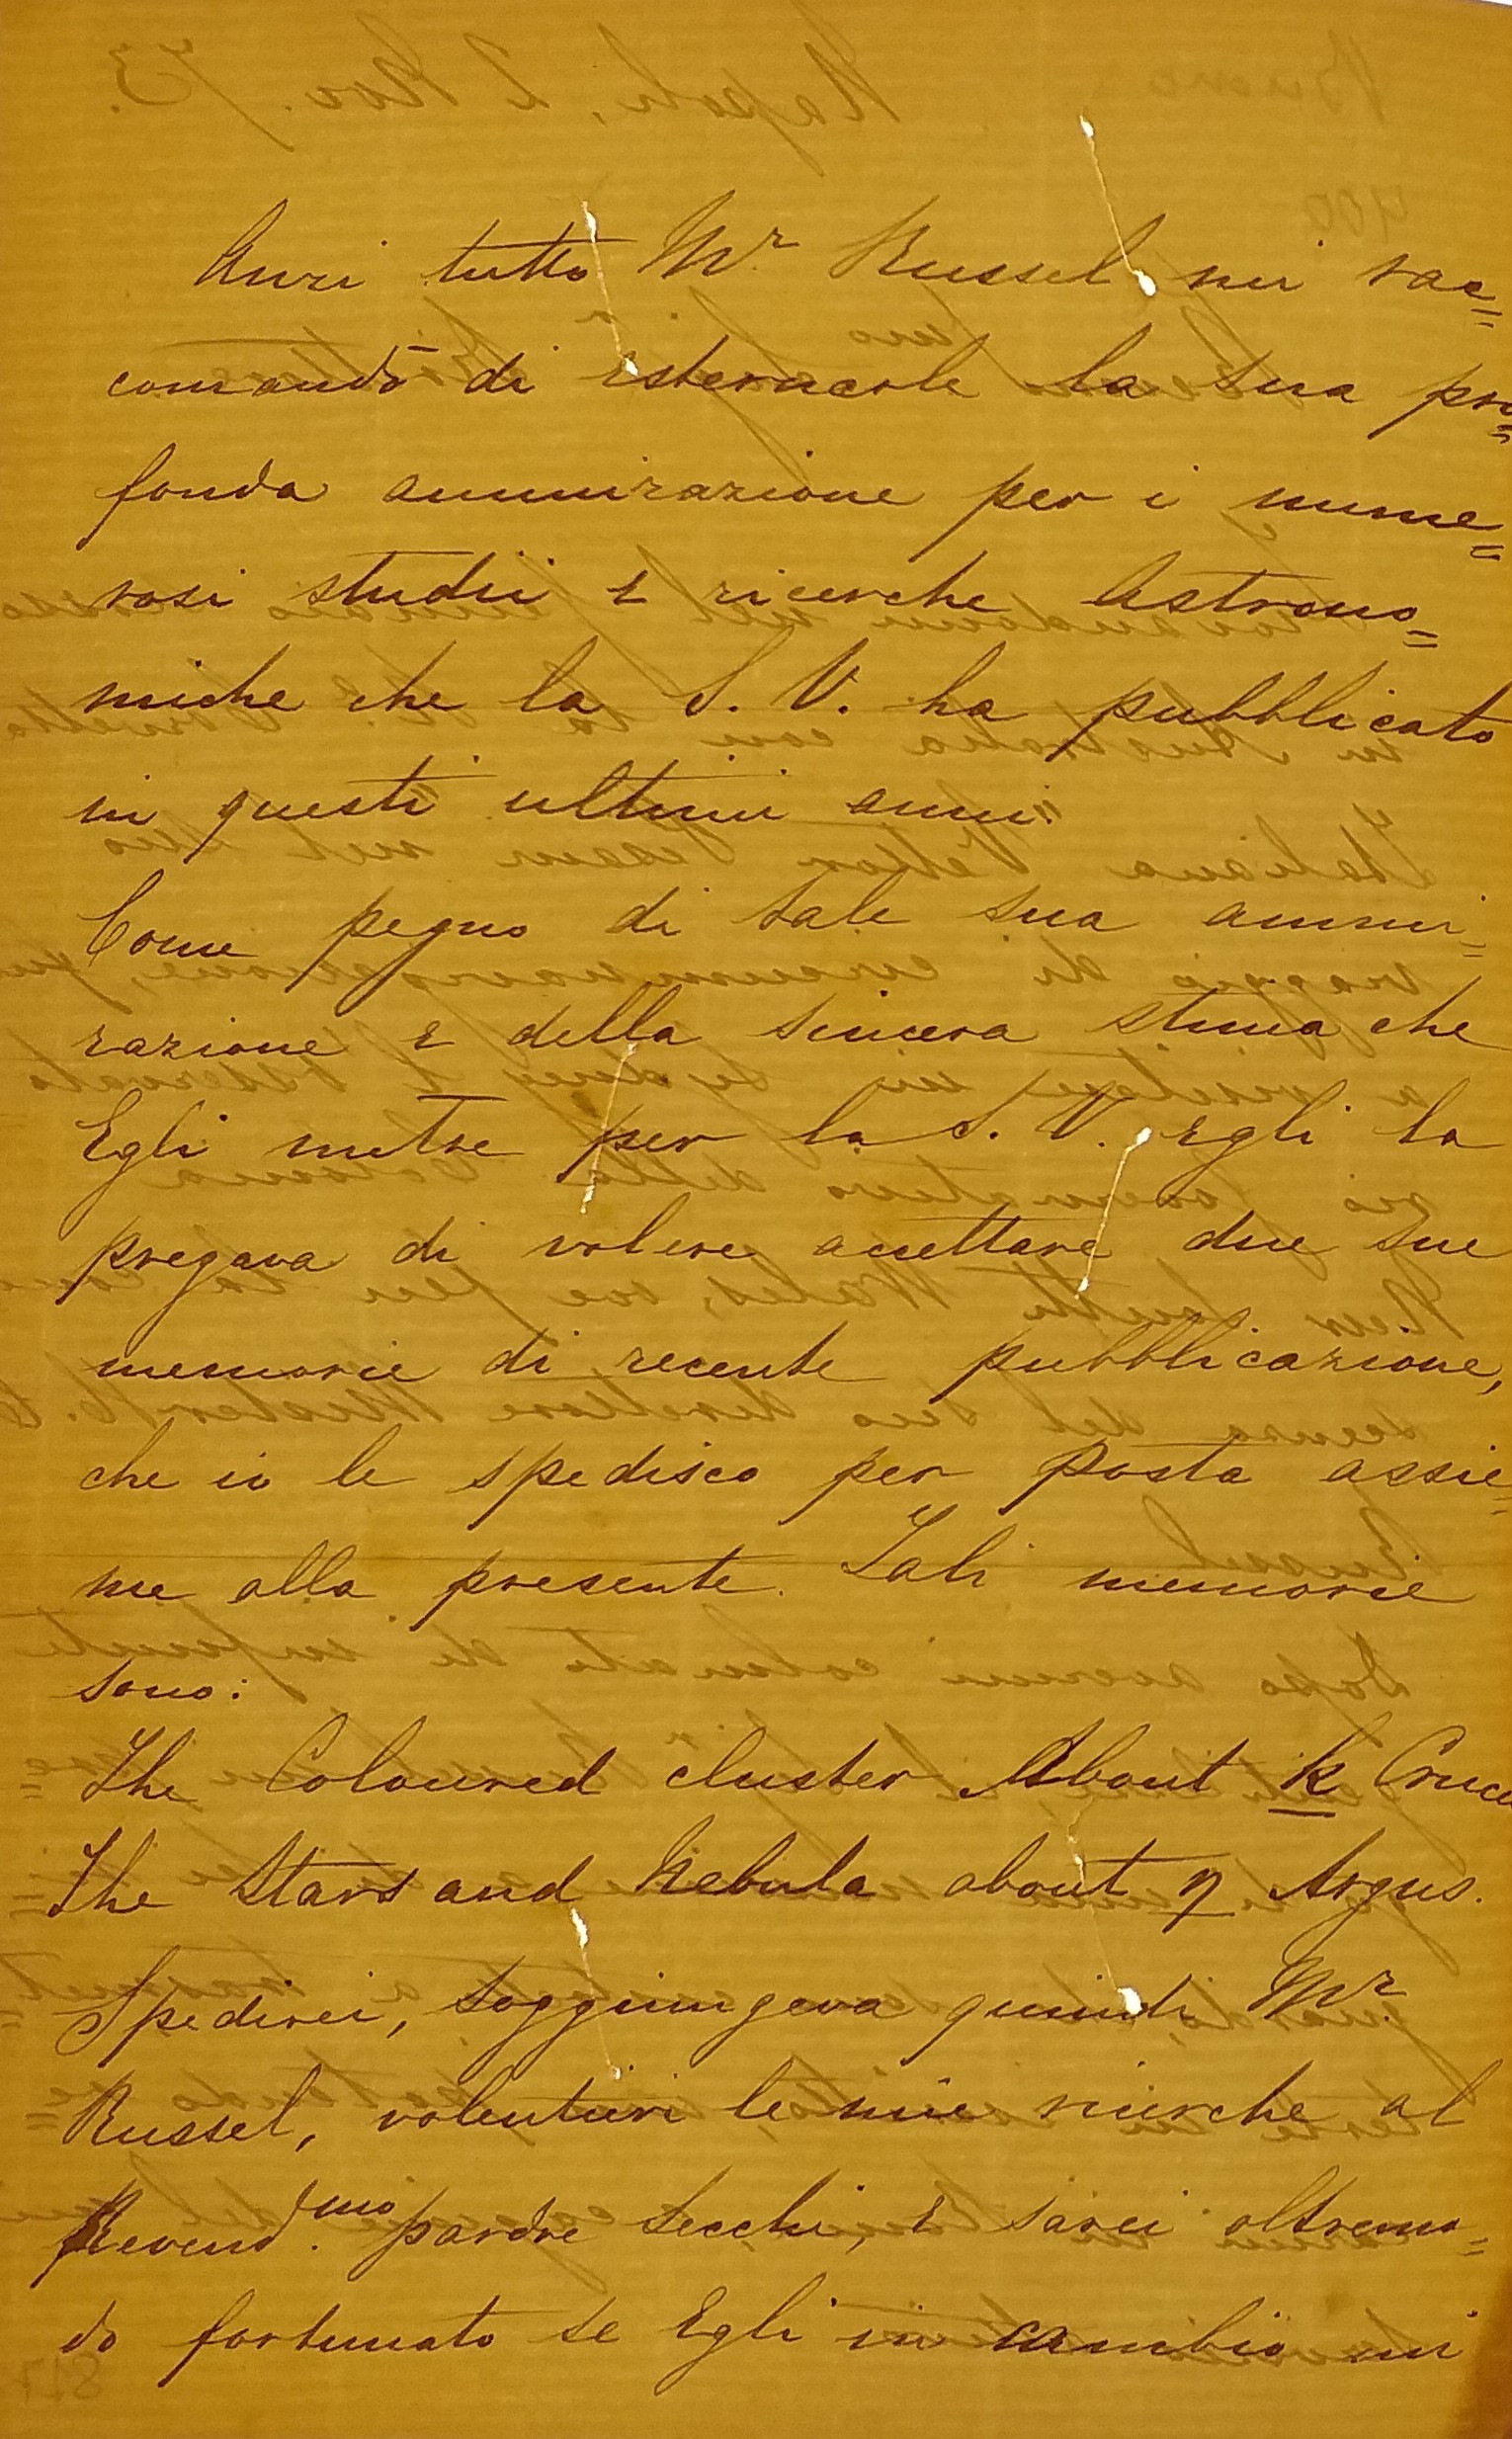 Anzi tutto Mr. Russel mi rac=
comandò di esternarle la sua pro=
fonda ammirazione per i nume=
rosi studii e ricerche Astrono=
miche che la S. V. ha pubblicato
in questi ultimi anni.
Come pegno di tale sua ammi=
razione e della sincera stima che
Egli nutre per la S. V. egli la
pregava di volere accettare due sue
memorie di recente pubblicazione,
che io le spedisco per posta assie=
me alla presente. Tali memorie
sono:
The Coloured cluster About k Crucis
The Stars and Nebula about η Argus.
Spedirei, soggiungeva quindi Mr.
Russel, volentieri le mie ricerche al
Revend.mo pardre Secchi, e sarei oltremo=
do fortunato se Egli in cambio mi